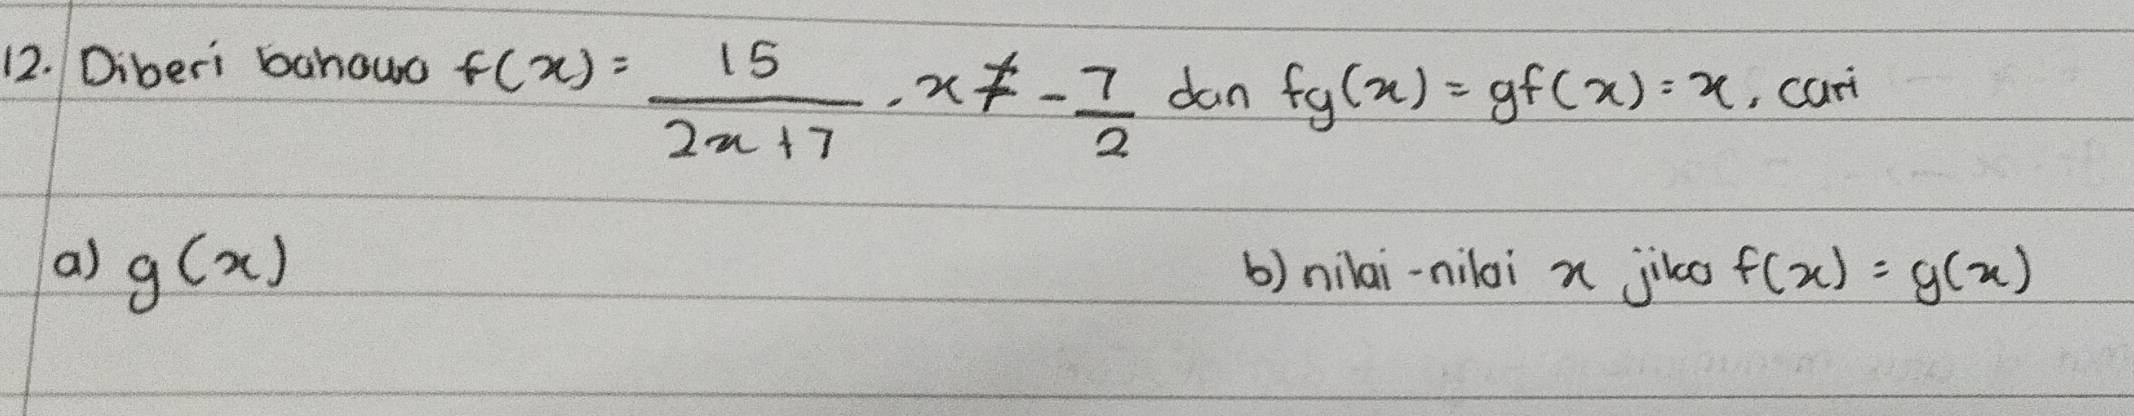 12. Diberi bahawa f(x) = 15/(2x + 7), x ≠ -7/2 dan fg(x) = gf(x) = x, cari
a) g(x) b) nilai-nilai x jika f(x) = g(x)